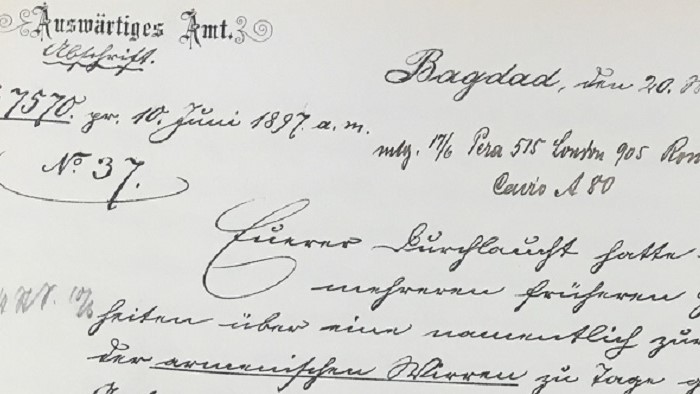 Auswärtiges Amt.
Abschrift.
Bagdad, den 20.
7570. pr. 10. Juni 1897. a. m.
mtg. 17/6 Pera 515 London 905 Rom
Cairo A 80
No. 37.
Euerer Durchlaucht hatte
mehreren früheren
heiten über eine namentlich zur
der armenischen Wirren zu Tage